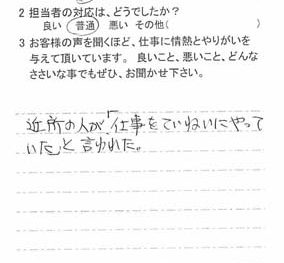 2 担当者の対応は、どうでしたか？
良い 普通 悪い その他( )
3 お客様の声を聞くほど、仕事に情熱とやりがいを
与えて頂いています。 良いこと、悪いこと、どんな
ささいな事でもぜひ、お聞かせ下さい。
近所の人が「仕事をていねいにやって
いた」と言われた。